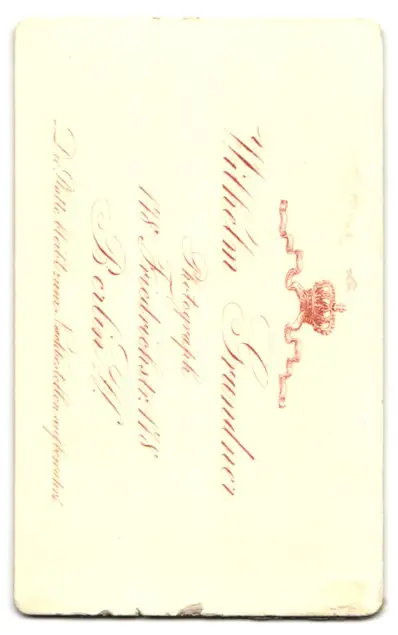 Wilhelm Grundner
Photograph
178 Friedrichstr. 178
Berlin W.
Die Platte bleibt zum Nachbestellen aufbewahrt